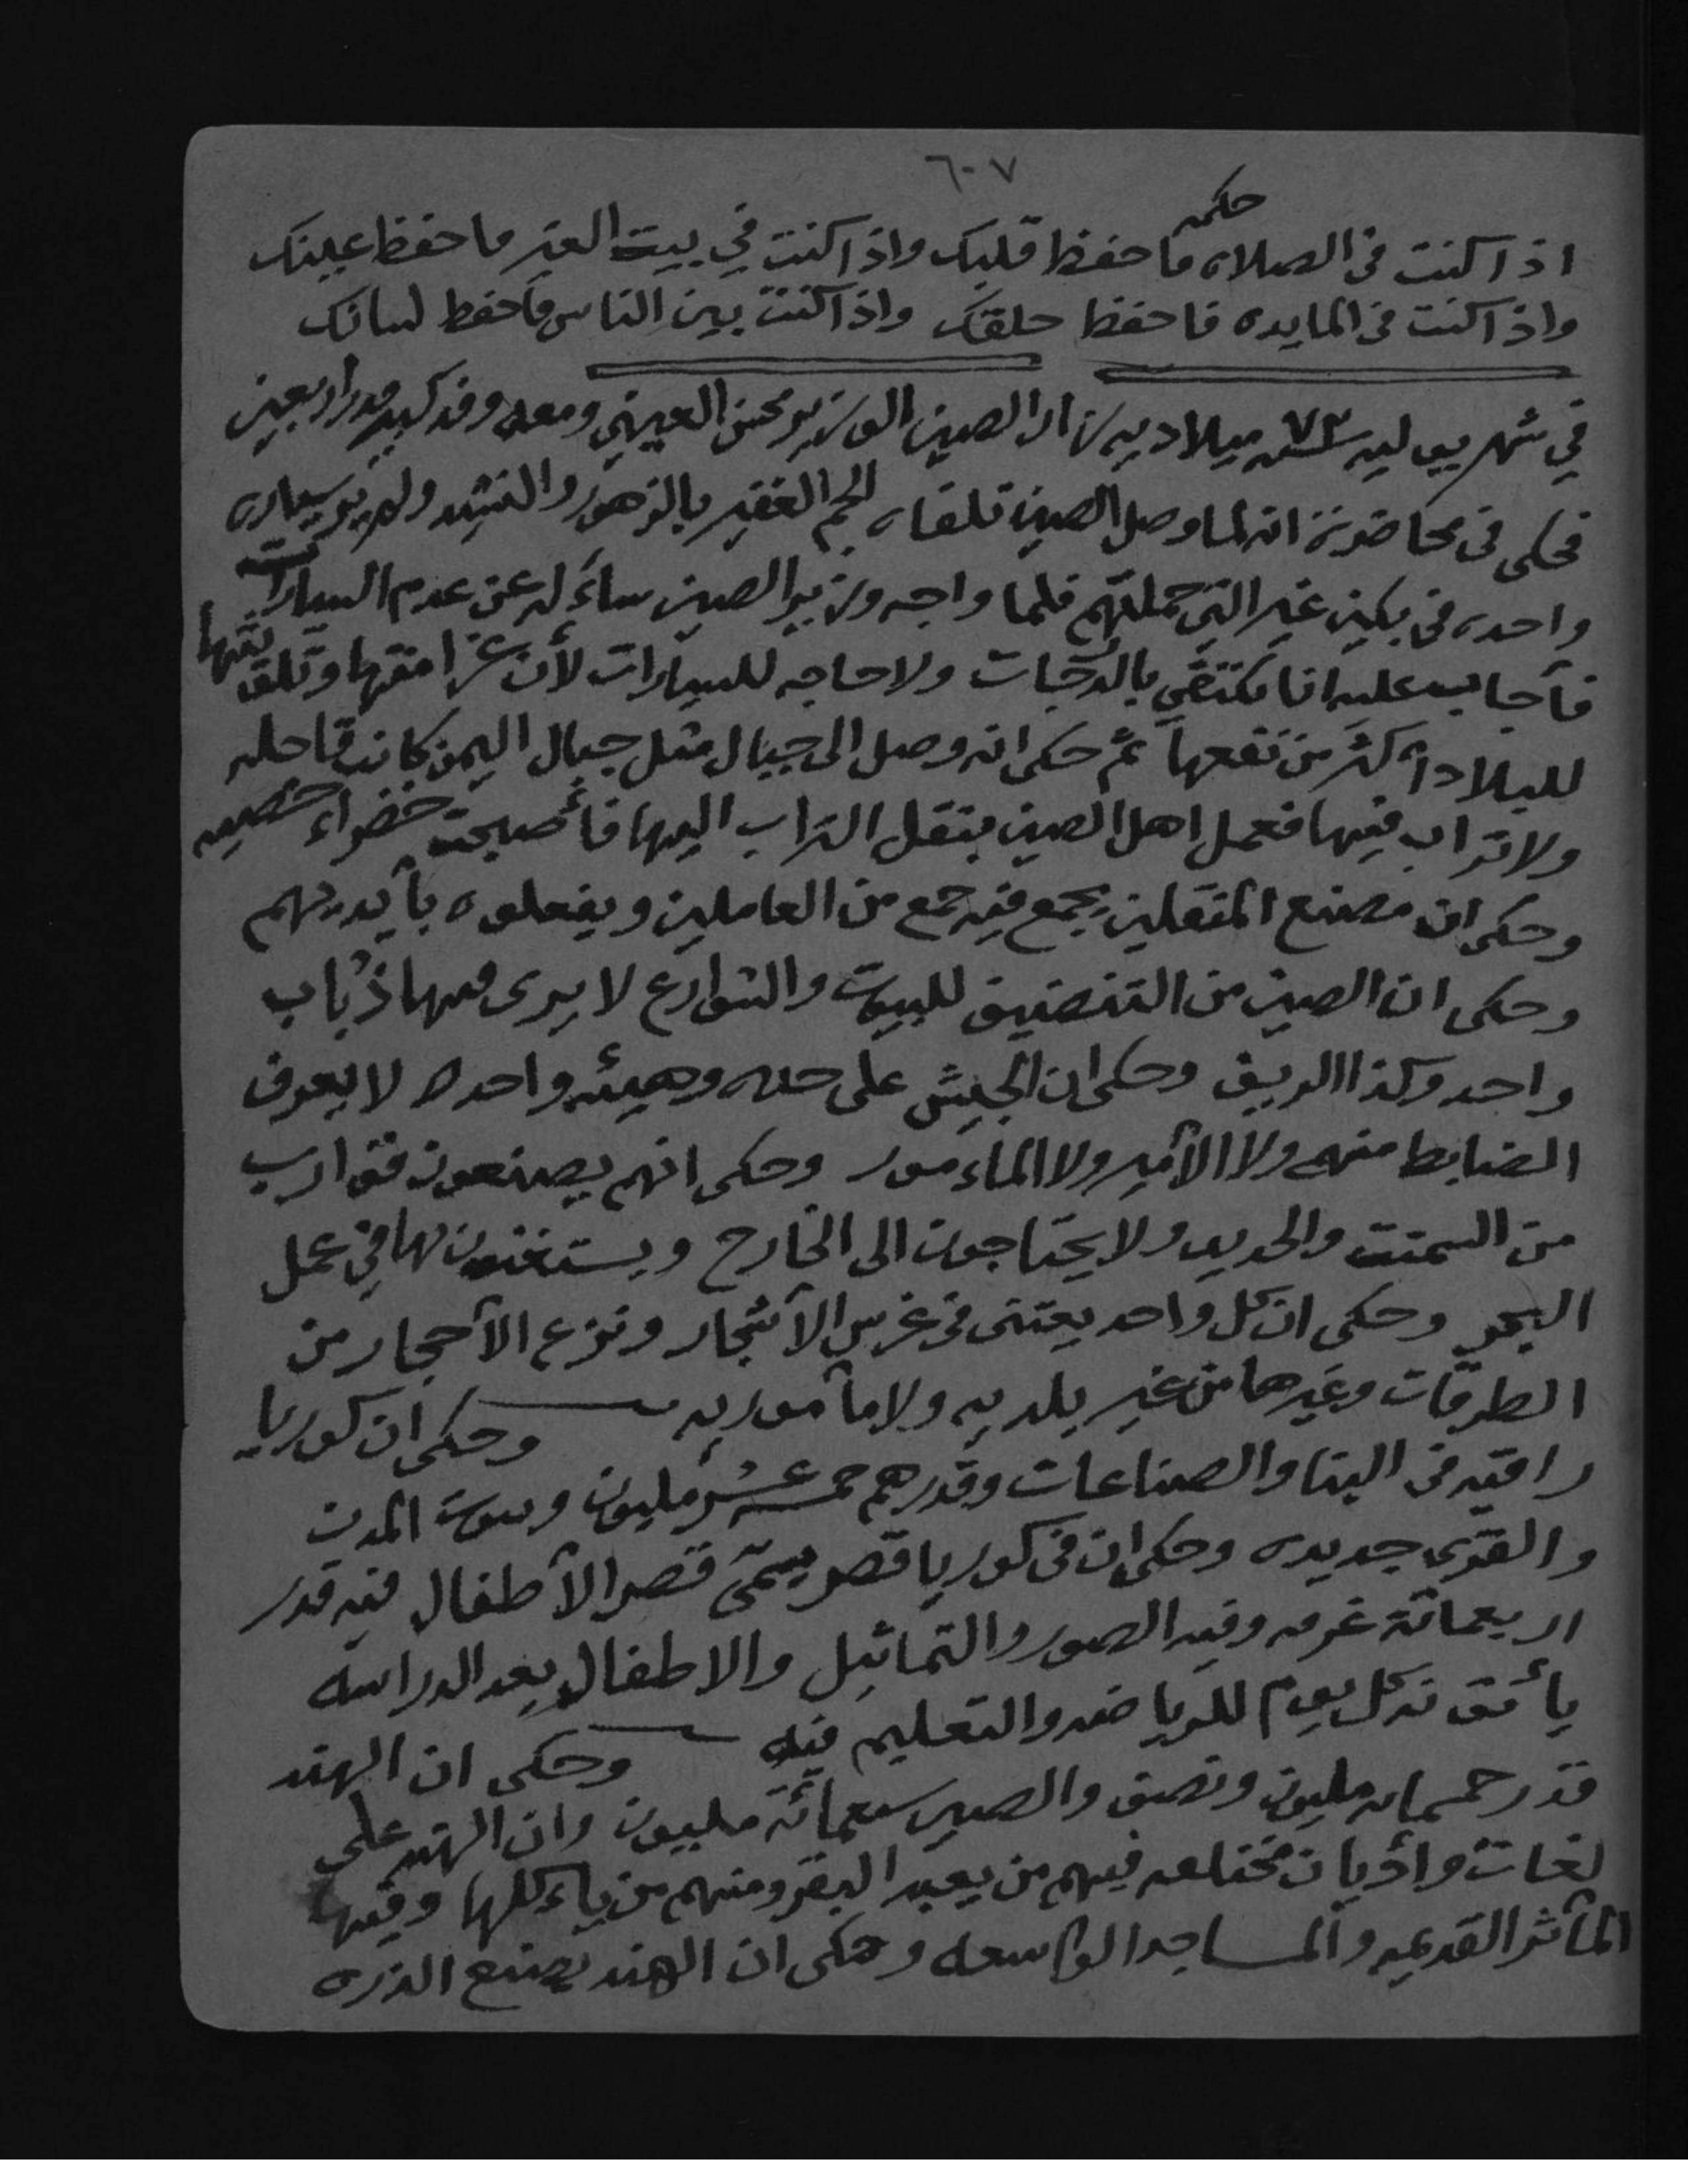 ٦٠٧
حكمه
اذا كنت في الصلاه فاحفظ قلبك واذا كنت في بيت الغير فاحفظ عينك
واذا كنت في المايده فاحفظ حلقك واذا كنت بين الناس فاحفظ لسانك
في شهر يوليه سنة ٧٣ ميلاديه زار الصين الوزير محسن العيني ومعه وفد كبير قدر أربعين
فحكى في محاضرته انه لما وصل الصين تلقاه الجم الغفير بالزهور والنشيد ولم ير سياره
واحده في بكين غير التي حملتهم فلما واجه وزير الصين ساءله عن عدم السيارات
فأجاب عليه انا نكتفي بالدرجات ولا حاجه للسيارات لأن غرامتها وتلفتها
للبلاد أكثر من نفعها ثم حكى انه وصل الى جبال مثل جبال اليمن كانت قاحله
ولا تراب فيها فعمل اهل الصين بنقل التراب اليها فأصبحت خضراء خصيبه
وحكى ان مصنع المتقلين يجمع فيه جمع من العاملين ويفعلوه بأيديهم
وحكى ان الصين من التنضيف للبيوت والشوارع لا يرى فيها ذباب
واحد وكذا الريف وحكى ان الجيش على حله وهيئه واحده لا يعرف
الضابط منهم ولا الأمير ولا الماءمور وحكى انهم يصنعون قوارب
من السمنت والحديد ولا يحتاجون الى الخارج ويستغنون بها في عمل
البحر وحكى ان كل واحد يعتني في غرس الأشجار ونزع الأحجار من
الطرقات وغيرها من غير بلديه ولا مأموريه وحكى ان كوريا
راقيه في البنا والصناعات وقدرهم خمسة عشر مليون وبيوت المدن
والقرى جديده وحكى ان في كوريا قصر يسمّى قصر الأطفال فيه قدر
اربعمائة غرفه وفيه الصور والتماثيل والاطفال بعد الدراسه
يأتونه كل يوم للرياضه والتعليم فيه وحكى ان الهند
قدر خمسمايه مليون ونصف والصين سبعمائة مليون وان الهند على
لغات وأديان مختلفه فيهم من يعبد البقر ومنهم من ياءكلها وفيها
المآثر القديمه والمساجد الواسعه وحكى ان الهند يصنع الذره